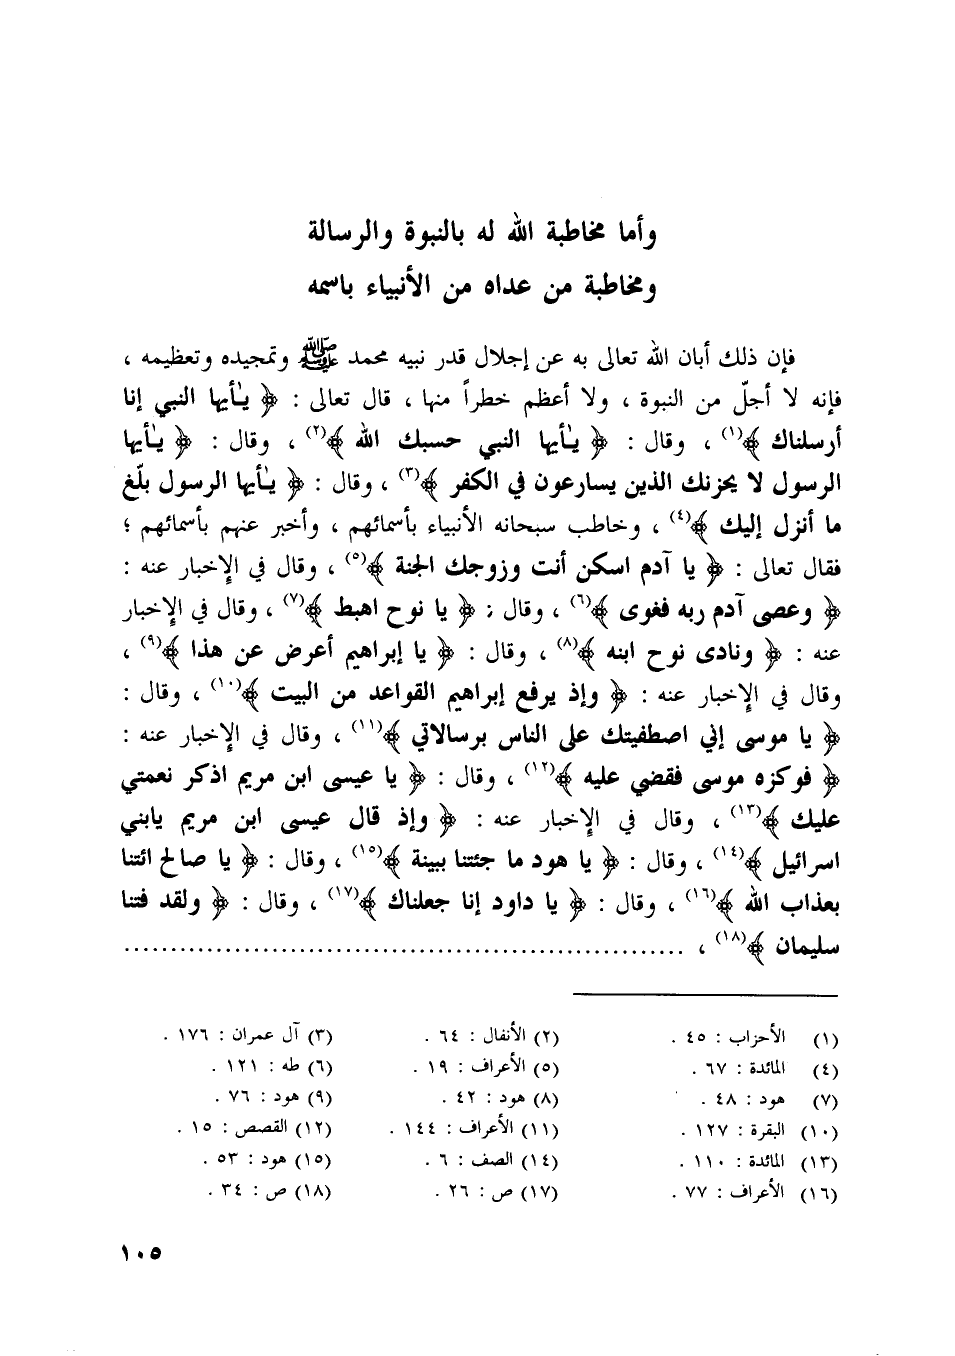 وأما مخاطبة الله له بالنبوة والرسالة
ومخاطبة من عداه من الأنبياء باسمه
فإن ذلك أبان الله تعالى به عن إجلال قدر نبيه محمد ﷺ وتمجيده وتعظيمه ،
فإنه لا أجلّ من النبوة ، ولا أعظم خطراً منها ، قال تعالى : ﴿ يـٰأيها النبي إنا
أرسلناك ﴾(١) ، وقال : ﴿ يـٰأيها النبي حسبك الله ﴾(٢) ، وقال : ﴿ يـٰأيها
الرسول لا يحزنك الذين يسارعون في الكفر ﴾(٣) ، وقال : ﴿ يـٰأيها الرسول بلّغ
ما أنزل إليك ﴾(٤) ، وخاطب سبحانه الأنبياء بأسمائهم ، وأخبر عنهم بأسمائهم ؛
فقال تعالى : ﴿ يا آدم اسكن أنت وزوجك الجنة ﴾(٥) ، وقال في الإخبار عنه :
﴿ وعصى آدم ربه فغوى ﴾(٦) ، وقال : ﴿ يا نوح اهبط ﴾(٧) ، وقال في الإخبار
عنه : ﴿ ونادى نوح ابنه ﴾(٨) ، وقال : ﴿ يا إبراهيم أعرض عن هذا ﴾(٩) ،
وقال في الإخبار عنه : ﴿ وإذ يرفع إبراهيم القواعد من البيت ﴾(١٠) ، وقال :
﴿ يا موسى إني اصطفيتك على الناس برسالاتي ﴾(١١) ، وقال في الإخبار عنه :
﴿ فوكزه موسى فقضي عليه ﴾(١٢) ، وقال : ﴿ يا عيسى ابن مريم اذكر نعمتي
عليك ﴾(١٣) ، وقال في الإخبار عنه : ﴿ وإذ قال عيسى ابن مريم يابني
اسرائيل ﴾(١٤) ، وقال : ﴿ يا هود ما جئتنا ببينة ﴾(١٥) ، وقال : ﴿ يا صالح ائتنا
بعذاب الله ﴾(١٦) ، وقال : ﴿ يا داود إنا جعلناك ﴾(١٧) ، وقال : ﴿ ولقد فتنا
سليمان ﴾(١٨) ، ........................................................................
(١) الأحزاب : ٤٥ . (٢) الأنفال : ٦٤ . (٣) آل عمران : ١٧٦ .
(٤) المائدة : ٦٧ . (٥) الأعراف : ١٩ . (٦) طه : ١٢١ .
(٧) هود : ٤٨ . (٨) هود : ٤٢ . (٩) هود : ٧٦ .
(١٠) البقرة : ١٢٧ . (١١) الأعراف : ١٤٤ . (١٢) القصص : ١٥ .
(١٣) المائدة : ١١٠ . (١٤) الصف : ٦ . (١٥) هود : ٥٣ .
(١٦) الأعراف : ٧٧ . (١٧) ص : ٢٦ . (١٨) ص : ٣٤ .
١٠٥